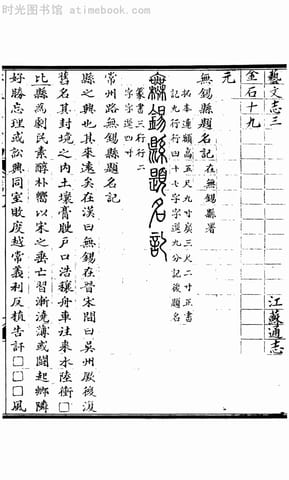 时光图书馆 atimebook.com
藝文志三
江蘇通志
金石十九
元
無錫縣題名記在無錫縣署
拓本連額高五尺九寸廣三尺二寸正書
記九行行四十七字字選九分記後題名
無錫縣題名記
篆書三行行二
字字選四寸
常州路無錫縣題名記
縣之興也其來遠矣在漢曰無錫在晉宋間曰吳州厥後復
舊名其封境之內土壤膏腴戶口浩穰舟車往来水陸衝□
比縣為劇民素醇朴嚮以宋之垂亡習漸澆薄或鬬起鄉隣
好勝忘理或訟興同室敗度越常義利反植告訐□□□風